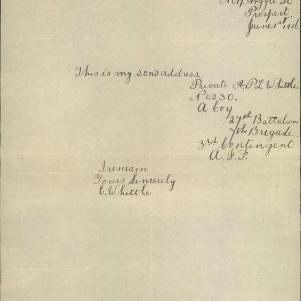 Prospect
June 1st 1916
This is my sons address
Private A. P. L Whittle
No 230.
A Coy
27th Battalion
7th Brigade
3rd Contingent
A. I. F.
I remain
Yours Sincerely
E. Whittle